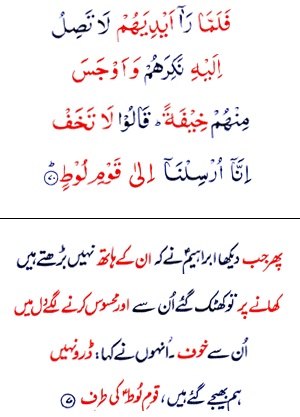 فَلَمَّا رَاٰۤ اَيْدِيَهُمْ لَا تَصِلُ
اِلَيْهِ نَكِرَهُمْ وَاَوْجَسَ
مِنْهُمْ خِيْفَةً ؕ قَالُوْا لَا تَخَفْ
اِنَّاۤ اُرْسِلْنَاۤ اِلٰى قَوْمِ لُوْطٍ ؕ ﴿۷۰﴾
پھر جب دیکھا ابراہیمؑ نے کہ ان کے ہاتھ نہیں بڑھتے ہیں
کھانے پر تو کھٹک گئے اُن سے اور محسوس کرنے لگے دل میں
اُن سے خوف ۔ اُنہوں نے کہا: ڈرو نہیں
ہم بھیجے گئے ہیں، قومِ لُوطؑ کی طرف